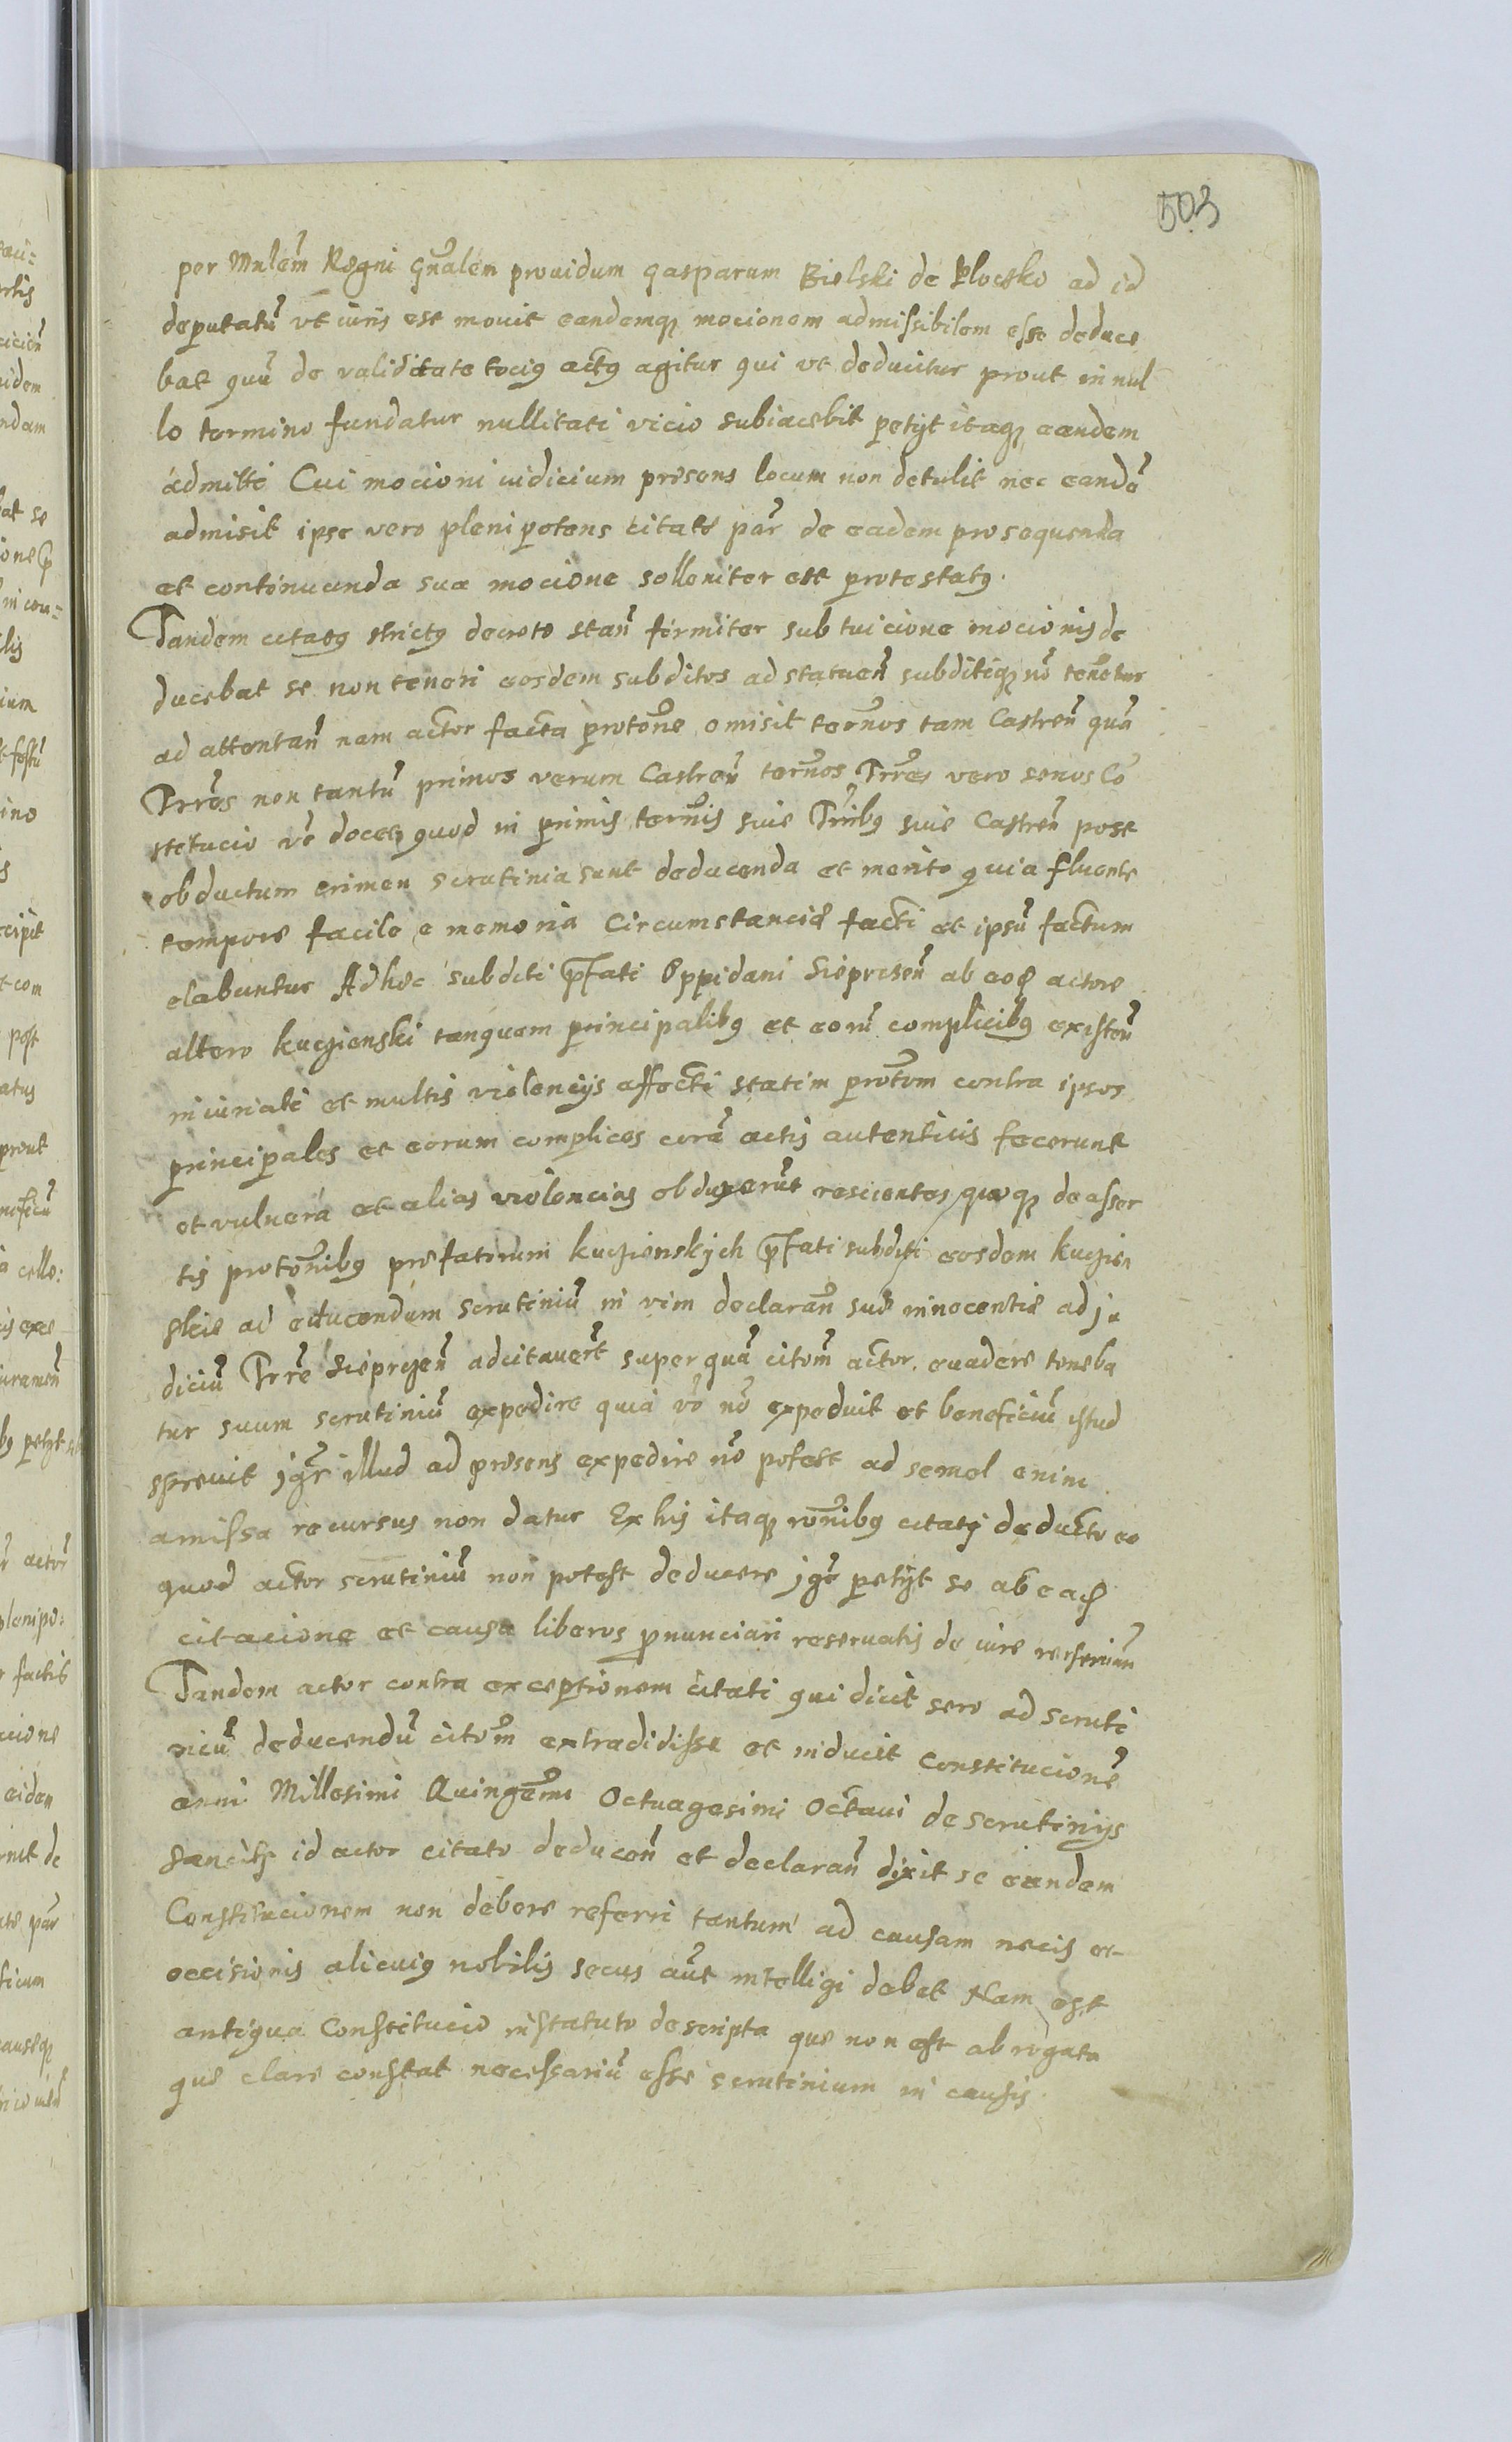 503
per Mnlem̃ Regni gñalem prouidum gasparum Bielski de Plocsko ad id
deputatũ vt iuris est mouit eandemq; mocionem admissibilem esse deduce
bat quũ de validitate tociꝰ actꝰ agitur qui vt deducitur prout in nul
lo termino fundatur nullitati vicio subiacebit petyt itaq; eandem
admitti Cui mocioni iudicium presens locum non detulit nec eandẽ
admisit ipse vero plenipotens citate par̃ de eadem prosequenda
et continuanda sua mocione solleniter est protestatꝰ.
Tandem citatꝰ strictꝰ decreto stañ firmiter sub tuicione mocionis de
ducebat se non teneri eosdem subditos ad statueñ subditiq; nõ tenẽtur
ad attentañ nam actor facta protõne omisit termños tam Castreñ quã
Trres̃ non tantũ primos verum Castreñ termños Trres̃ vero senos Cõ
stitucio võ docet quod in primis termñis siue Trribꝰ siue Castreñ post
obductum crimen scrutinia sunt deducenda et merito quia fluente
tempore facile e memoria Circumstancie facti et ipsũ factum
elabuntur Adhec subditi p̃fati Oppidani Sieprcseñ ab eoꝺ actore
altero kuczienski tanquam principalibꝰ et eorũ complicibꝰ existeñ
iniuriati et multis violencijs affecti statim protõm contra ipsos
principales et eorum complices corã actis autenticis fecerunt
et vulnera et alias violencias obduxerũt rescientes quoq; de asser
tis protõnibꝰ prefatorum kuczienskych p̃fati subditi eosdem kuczien
skie ad educendum scrutiniũ in vim declarañ sue innocentie ad ju
diciũ Trre Sieprczeñ adcitauert̃ super quã citõm actor euadere teneba
tur suum scrutiniũ expedire quia võ nõ expediuit et beneficiũ istud
spreuit jgr̃ illud ad presens expedire nõ potest ad semel enim
amissa recursus non datur Ex his itaq; rõnibꝰ citatꝰ deducto eo
quod actor scrutiniũ non potest deducere jgr̃ petyt se ab eaꝺ
citacione et causa liberos pronunciari reseruatis de iure reseruañ
Tandem actor contra exceptionem citati qui dicit sero ad scruti
niũ deducendũ citõm extradidisse et inducit Constitucionẽ
anni Millesimi Quingẽmi Octuagesimi Octaui de scrutinijs
id actor citato deduceñ et declarañ dixit se eandem
Constitucionem non debere referri tantum ad causam necis et
occisionis alicuiꝰ nobilis secus aũt intelligi debet Nam est
antiqua Constitucio in statuto descripta que non est abrogata
que clare constat necessariũ esse scrutinium in causis.